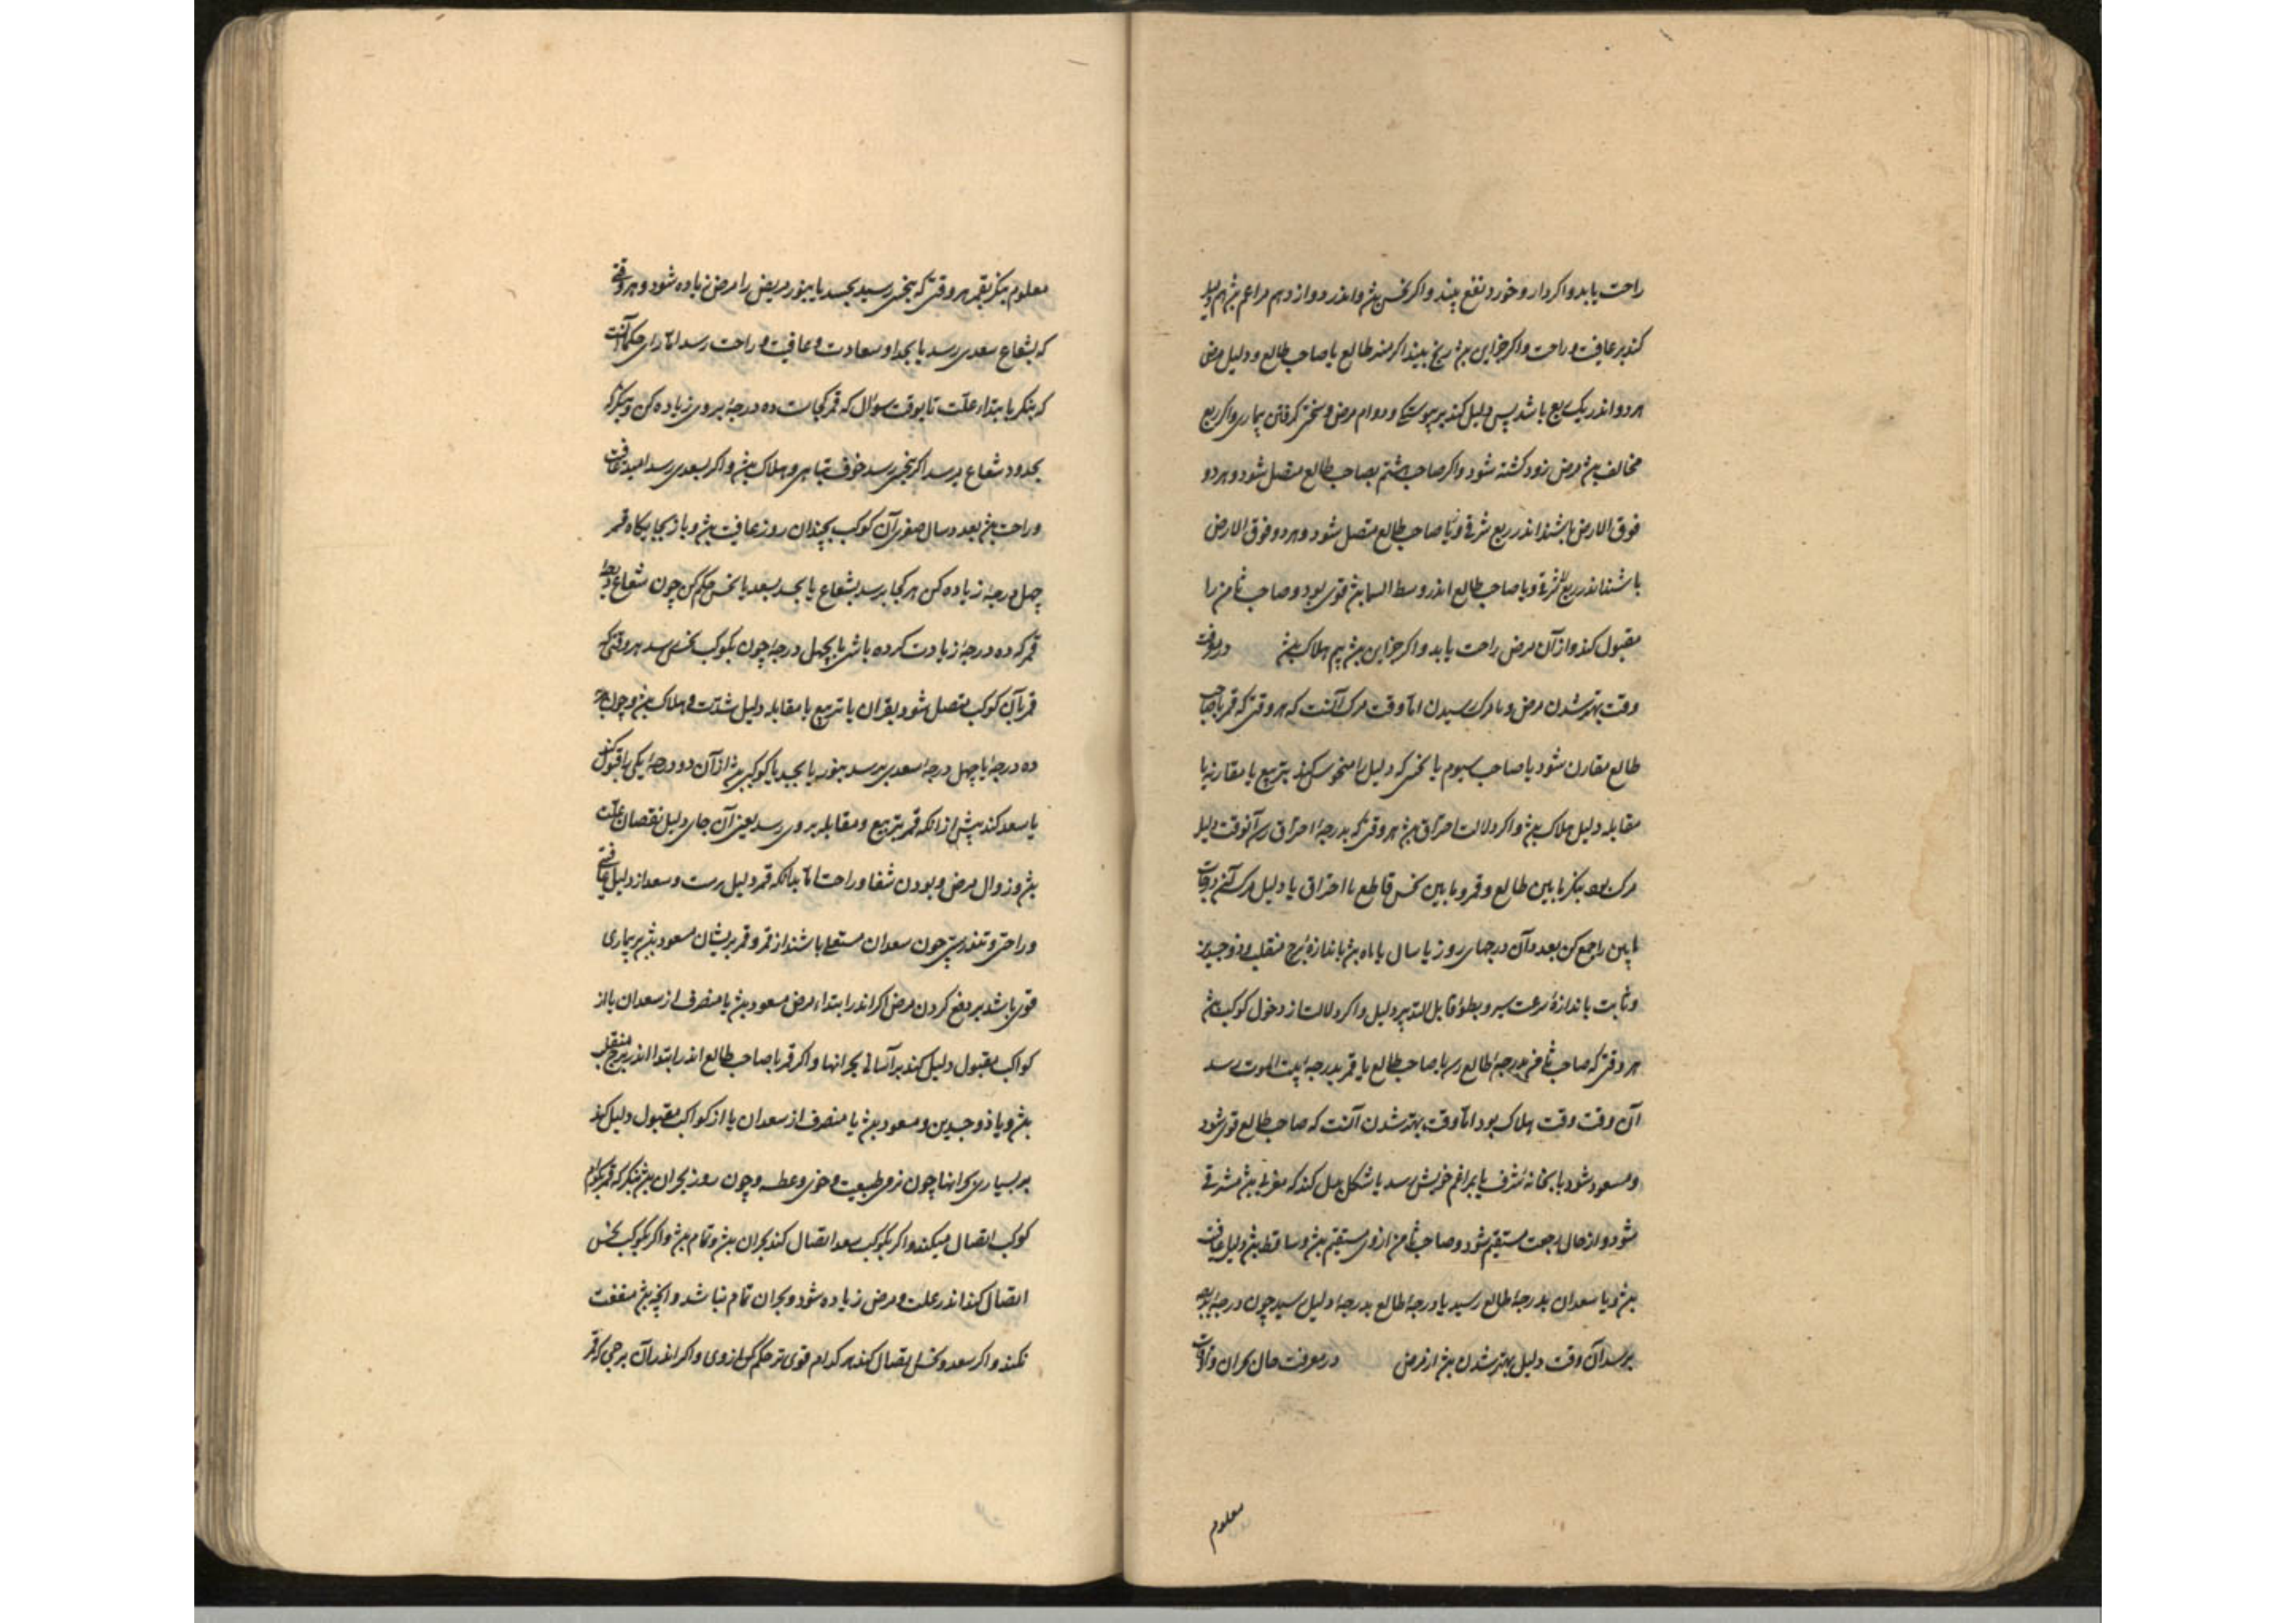 راحت یابد و اکر دارو خورد نفع بیند و اکر نحس بیند و اندر دوازدهم مراغم بود هم دلیل
کند بر عافیت و راحت و اکر جز این بود رنج بیند اکر خداوند طالع یا صاحب طالع و دلیل مرض
هر دو اندر یک ربع باشد پس دلیل کند بر پیوستکی و دوام مرض و سختی کرفتن بیماری و اکر ربع
مخالف بود مرض زود کشته شود و اکر صاحب هشتم بصاحب طالع متصل شود و هر دو
فوق الارض باشند اندر ربع شرقی و یا صاحب طالع متصل شود و هر دو فوق الارض
باشند اندر ربع شرقی و یا صاحب طالع اندر وسط السما بود قوی بود و صاحب ثامن را
مقبول کند و از آن مرض راحت یابد و اکر جز این بود بیم هلاک بود در معرفت
وقت بهتر شدن مرض و یا مرک رسیدن اما وقت مرک آنست که هر وقتی که قمر با صاحب
طالع مقارن شود یا صاحب سیوم یا نحس که دلیل را منحوس کند بتربیع یا مقارنه یا
مقابله دلیل هلاک بود و اکر دلالت احتراق بود هر وقتی که بدرجهٔ احتراق رسد آنوقت دلیل
مرک بود بنکر مابین طالع و قمر و مابین نحس قاطع یا احتراق یا دلیل مرک
مابین راجع کن بعدد آن درجهای روز یا سال یا ماه بود باندازهٔ برج منقلب و ذو جسدین
و ثابت باندازهٔ سرعت سیر و بطوء قابل التدبیر دلیل و اکر دلالت از دخول کوکب بود
هر وقتی که صاحب ثامن بدرجهٔ طالع رسد یا صاحب طالع یا قمر بدرجهٔ بیت الموت رسد
آن وقت وقت هلاک بود اما وقت بهتر شدن آنست که صاحب طالع قوی شود
و مسعود شود یا بخانهٔ شرف یا بمراغم خویش رسد یا شکل بدل کند که مغربی بود مشرقی
شود و از حال رجعت مستقیم شود و صاحب ثامن از وی مستقیم بود و ساقط بود دلیل عافیت
بود و یا سعدان بدرجهٔ طالع رسید یا درجهٔ طالع بدرجهٔ دلیل رسید چون درجهٔ
برسد آن وقت دلیل بهتر شدن بود از مرض در معرفت حال بحران و اوقات
معلوم
معلوم بنکر بقمر هر وقتی که بنحس رسید بجسد یا بنور مریض را مرض زیاده شود و هر وقتی
که بشعاع سعدی رسد یا بجد او سعادت و عافیت و راحت رسد اما رای حکما آنست
که بنکر بابتداء علت تا بوقت سوال که قمر کجاست ده درجه بر وی زیاده کن و بنکر که
بحدود شعاع برسد اکر بنحس رسد خوف تباهی و هلاک بود و اکر بسعدی رسد امید عافیت
و راحت بود بعدد سال صغری آن کوکب بچندان روز عافیت بود و باز بجایکاه قمر
چهل درجه زیاده کن هر کجا برسد بشعاع یا بجسد بسعد یا نحس حکم کن چون شعاع و
قمر که ده درجه زیادت کرده باشی یا بچهل درجه چون بکوکب نحس رسد هر وقتی که
قمر بآن کوکب متصل شود بقران یا تربیع یا مقابله دلیل شدت و هلاک بود و چون
ده درجه یا چهل درجهٔ سعدی برسد بنور یا بجسد یا کوکبی بود از آن دو درجه یکی را قبول کند
یا سعد کند پیش از آنکه قمر بتربیع و مقابله بر وی رسد یعنی آن جای دلیل نقصان علت
بود و زوال مرض و بودن شفا و راحت اما بدانکه قمر دلیل مرضست و سعد از دلیل عافیتی
و راحتی و تندرستی چون سعدان مستعلی باشند از قمر و قمر بریشان مسعود بود بر بیماری
قوی باشد بر دفع کردن مرض اکر اندر ابتداء مرض مسعود بود یا منصرف از سعدان یا از
کواکب مقبول دلیل کند بر آسانی بحرانها و اکر قمر با صاحب طالع اندر ابتدا اندر برج منقلب
بود و یا ذو جسدین و مسعود بود یا منصرف از سعدان یا از کواکب مقبول دلیل کند
بر بسیاری بحرانها چون نرمی طبیعت و خوی و عطسه و چون روز بحران بود بنکر که قمر بکدام
کوکب اتصال میکند و اکر بکوکب سعد اتصال کند بحران بود و تمام بود و اکر بکوکب نحس
اتصال کند اندر علت و مرض زیاده شود و بحران تمام نباشد و آنچه بود منفعت
نکند و اکر سعد و نحس اتصال کند هر کدام قوی تر حکم کن از وی و اکر اندر آن برجی که قمر